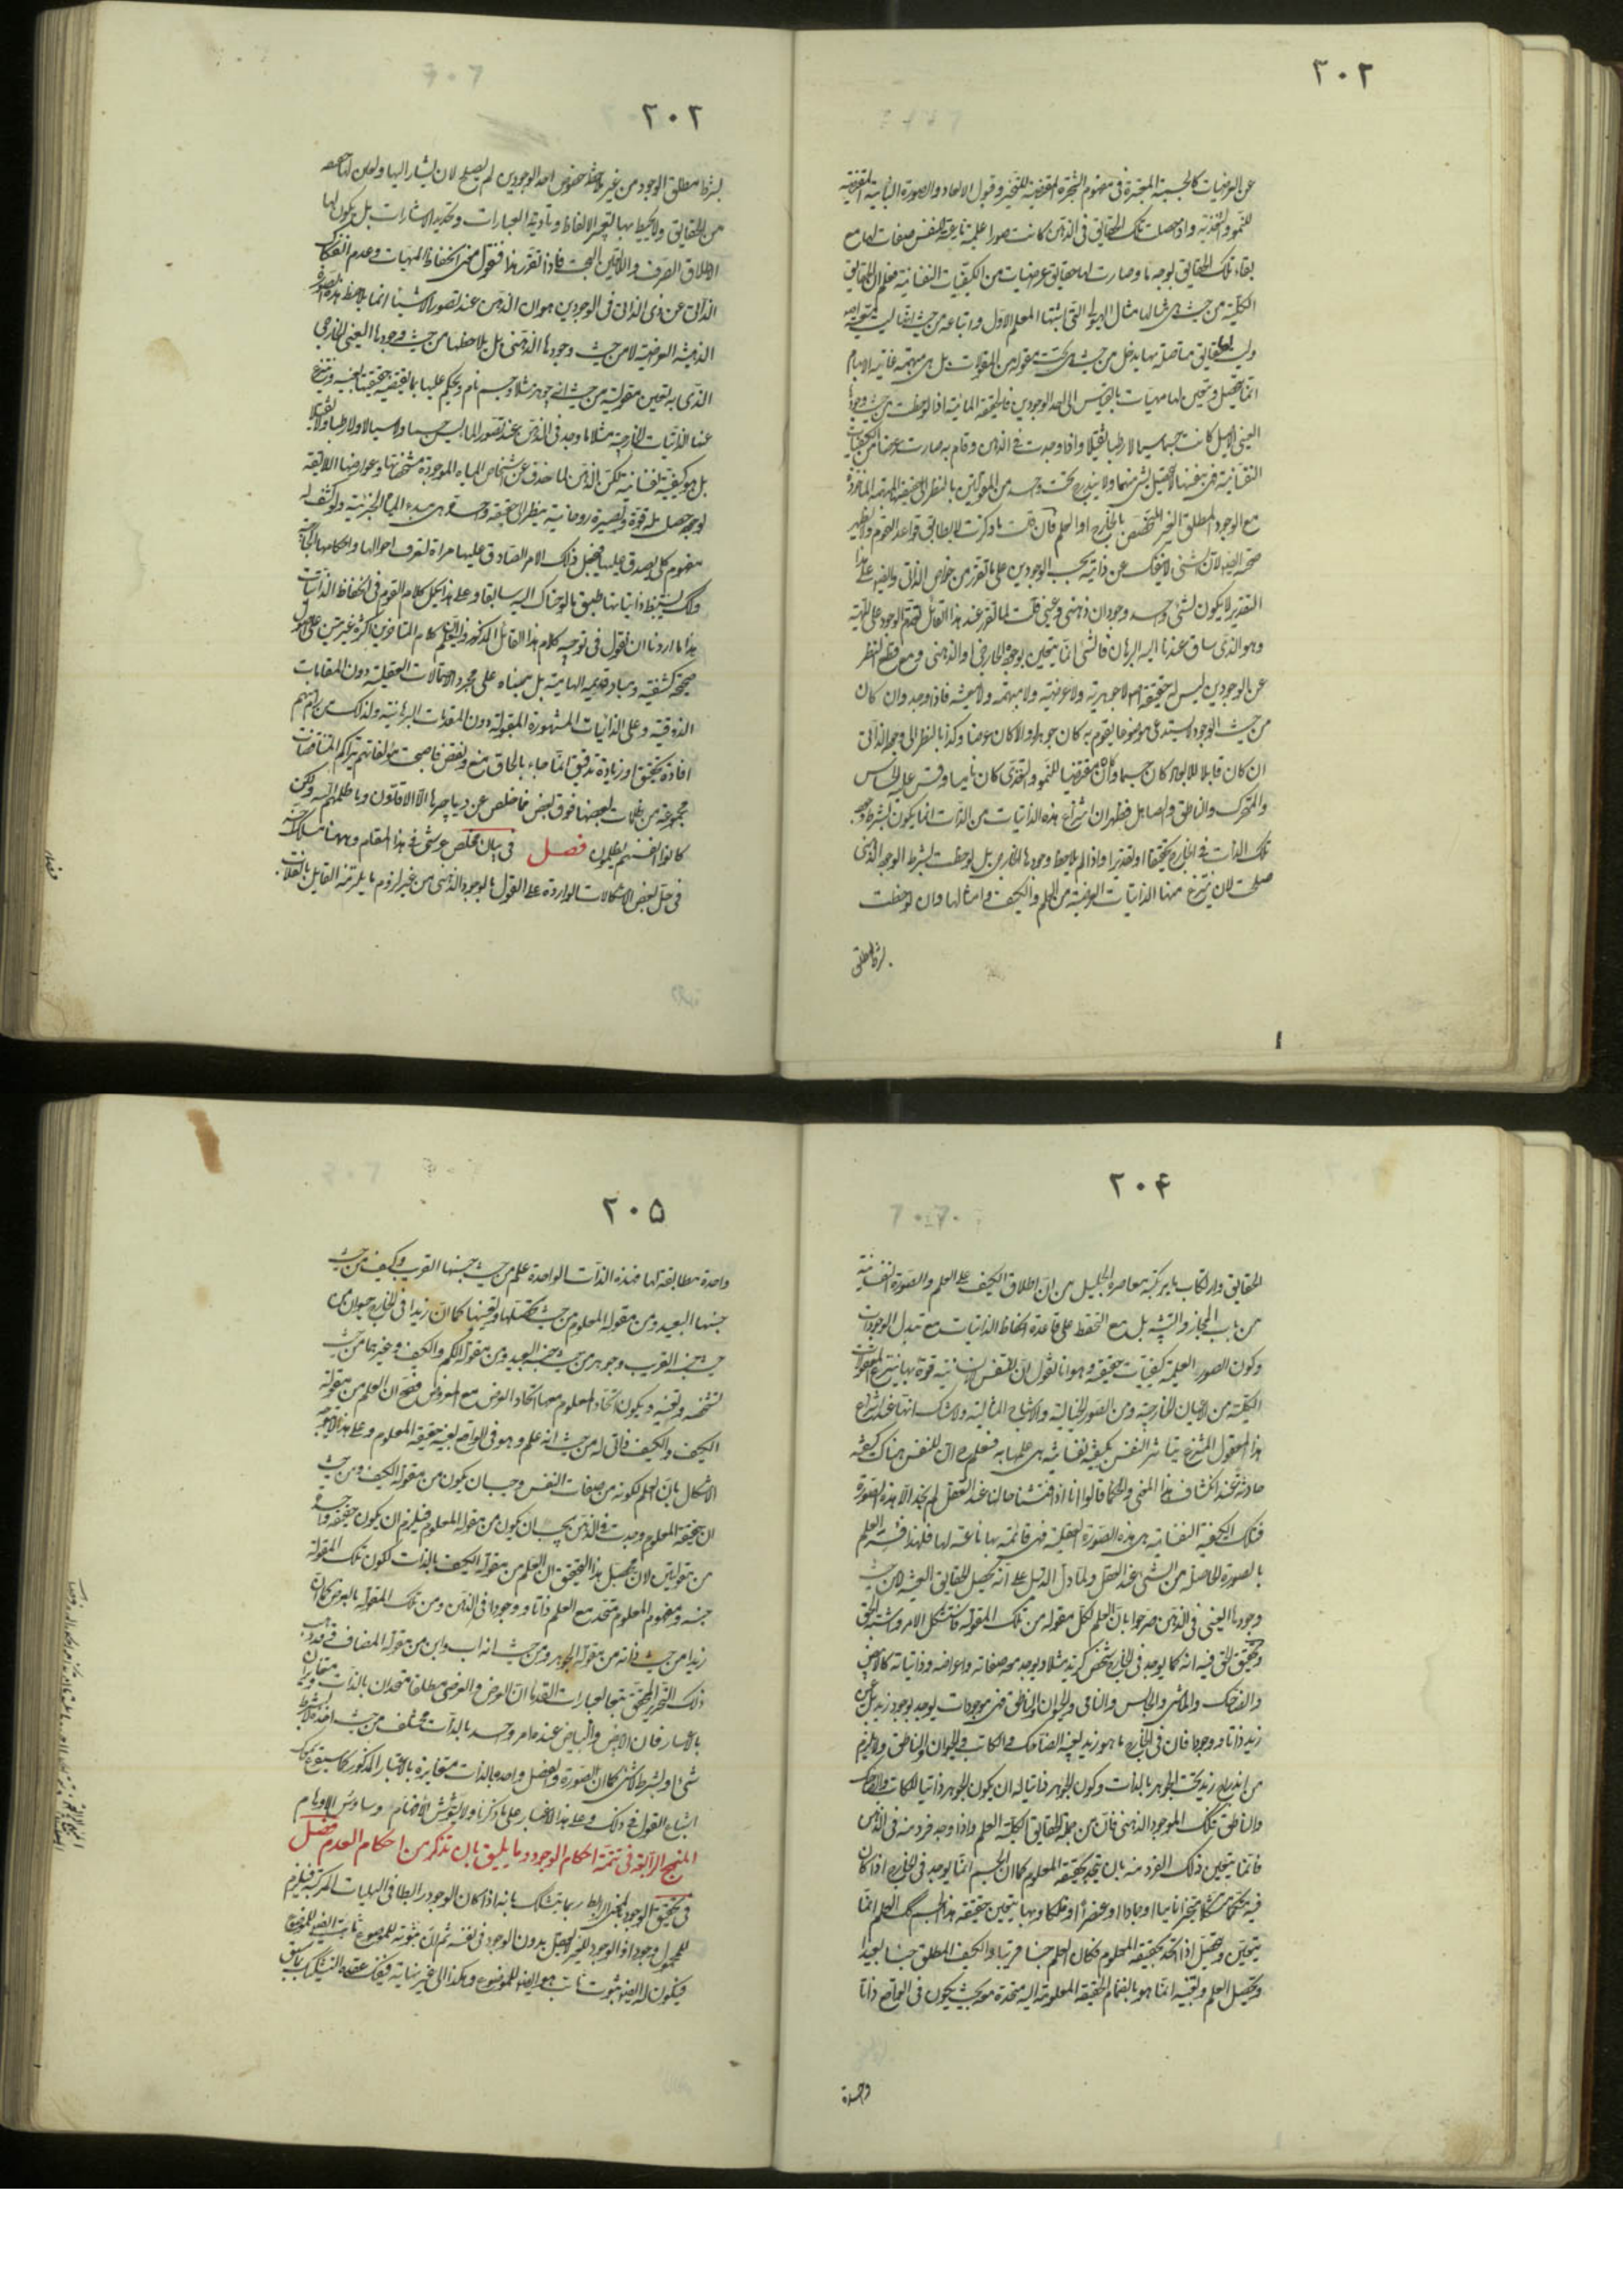 ٢٠٢
عن العرضيات كالجسمية المعتبرة في مفهوم الشجرة المقتضية للتحيز وقبول الابعاد والصورة النباتية المقتضية
للنمو والتغذية واذا حصلت تلك الحقايق في الذهن كانت صورا علمية ناعتية للنفس صفات لها مع
بقاء تلك الحقايق بوجه ما وصارت لها حقايق عرضيات من الكيفيات النفسانية فعلم ان الحقايق
الكلية من حيث هي مثالها مثال الهيولى التي اثبتها المعلم الاول واتباعه من حيث انها ليست
وليست لها حقايق متأصلة بها يدخل من حيث هي تحت مقولة من المقولات بل هي مبهمة غاية الابهام
انما يتحصل ويتعين لها مهيات بالقياس الى احد الوجودين فالحقيقة المائية اذا لوحظت من حيث وجودها
العيني الاصيل كانت جسما سيالا رطبا ثقيلا واذا وجدت في الذهن وقام به صارت عرضا من الكيفيات
النفسانية فهي بنفسها لا تحصل لشيء منهما ولا يندرج تحت واحد من المقولتين بالنظر الى الحقيقة المبهمة المأخوذة
مع الوجود المطلق الغير المتخصص بالخارج او العلم فان قلت ما ذكرت لا يطابق قواعد القوم ولا يظهر
صحته ايضا لان الشيء لا ينفك عن ذاتيه بحسب الوجودين على ما تقرر من خواص الذاتي وايضا على هذا
التقدير لا يكون لشيء واحد وجودان ذهني وعيني قلت لما تقرر عند هذا القائل تقدم الوجود على المهية
وهو الذي ساق عندنا اليه البرهان فالشيء انما يتعين بوجوده الخارجي او الذهني ومع قطع النظر
عن الوجودين ليس له حقيقة اصلا لا جوهرية ولا عرضية ولا مبهمة ولا معينة فاذا وجد وان كان
من حيث الوجود يستدعي موضوعا يقوم به كان جوهرا والا كان عرضا وكذا بالنظر الى وجوده الذاتي
ان كان قابلا للابعاد كان جسما وان كان مقتضيا للنمو والتغذي كان ناميا وقس عليه الحساس
والمتحرك والناطق والصاهل فظهر ان انتزاع هذه الذاتيات من الذات انما يكون بشرط وجود
تلك الذات في الخارج تحقيقا او تقديرا واذا لم يلاحظ وجودها الخارجي بل لوحظت بشرط الوجود الذهني
صلحت لان ينتزع منها الذاتيات العرضية من العلم والكيف وامثالها وان لوحظت
بشرط مطلق
٢٠٢
بشرط مطلق الوجود من غير ملاحظة خصوص احد الوجودين لم يصلح لان يشار اليها ويعين لها حقيقة
من الحقايق ولا يحيط بها التعبير الالفاظ وتأدية العبارات وتحديد الاشارات بل يكون لها
الاطلاق الصرف واللاتعين البحت فاذا تقرر هذا فنقول معنى انحفاظ المهيات وعدم انفكاك
الذاتي عن ذي الذاتي في الوجودين هو ان الذهن عند تصور الاشياء انما يلاحظ هذه الصورة
الذهنية العرضية لا من حيث وجودها الذهني بل يلاحظها من حيث وجودها العيني الخارجي
الذي به يتعين مقوليته من حيث انه جوهر مثلا وجسم نام ويحكم عليها بما يقتضيه حقيقتها العينية وينتزع
عنها الذاتيات الخارجية مثلا ما وجد في الذهن عند تصور الماء ليس جسما ولا سيالا ولا رطبا ولا ثقيلا
بل هو كيفية نفسانية لكن الذهن لما حذف عن اشخاص المياه الموجودة مشخصاتها وعوارضها اللاحقة
لوجوده حصل له قوة وبصيرة روحانية ينظر الى حقيقة واحدة هي مبدء المياه الجزئية وانكشف له
مفهوم كلي يصدق عليها فيجعل ذلك الامر الصادق عليها مرآة لتعرف احوالها واحكامها الخارجية
ولك ان يستنبط ذاتياتها طبق ما لوحناك اليه سابقا وعلى هذا يحمل كلام القوم في انحفاظ الذاتيات
هذا ما اردنا ان نقول في توجيه كلام هذا القائل المذكور وان لم يكن كلام المتأخرين اكثره غير مبني على اصول
صحيحة كشفية ومبادي قويمة الهامية بل مبناه على مجرد الاحتمالات العقلية دون المقامات
الذوقية وعلى الذائعات المشهورة المقبولة دون المقدمات البرهانية ولذلك من رام منهم
افادة تحقيق او زيادة تدقيق انما جاء بالحاق منع ونقض فاصبحت مؤلفاتهم بتراكم المناقضات
مجموعة من ظلمات بعضها فوق بعض فما خلص عن دياجيرها الا الاقلون وما ظلمهم الله ولكن
كانوا انفسهم يظلمون فصل في بيان مخلص عرشي في هذا المقام وههنا مسلك اخر
في حل بعض الاشكالات الواردة على القول بالوجود الذهني من غير لزوم ما يلزمه القايل بانقلاب
٢٠٤
الحقايق وارتكاب ما يرتكبه معاصره الجليل من ان اطلاق الكيف على العلم والصورة النفسانية
من باب المجاز والتشبيه بل مع التحفظ على قاعدة انحفاظ الذاتيات مع تبدل الوجودات
وكون الصور العلمية كيفيات حقيقة وهو انا نقول ان للنفس الانسانية قوة بها ينتزع المعقولات
الكلية من الاعيان الخارجية ومن الصور الخيالية والاشباح المثالية ولا شك انها عند انتزاع
هذا المعقول المنتزع يتاثر النفس بكيفية نفسانية هي علمها به فنعلم ان للنفس هناك كيفية
حادثة عند انكشاف هذا المعنى والحكماء قالوا انا اذا فتشنا حالنا عند التعقل لم نجد الا هذه الصورة
فتلك الكيفية النفسانية هي هذه الصورة العقلية فهي قائمة بها ناعتة لها فلهذا فسر العلم
بالصورة الحاصلة من الشيء عند العقل ولما دل الدليل على انه يحصل الحقايق العينية لا من حيث
وجودها العيني في الذهن صرحوا بان العلم لكل مقولة من تلك المقولة فاستشكل الامر واشتبه الحق
وتحقيق الحق فيه انه كما يوجد في الخارج شخص كزيد مثلا ويوجد معه صفاته واعراضه وذاتياته كالابيض
والضاحك والماشي والجالس والنامي والحيوان والناطق فهي موجودات يوجد بوجود زيد بل عين
زيد ذاتا ووجودا فان في الخارج ما هو زيد بعينه الضاحك والكاتب والحيوان والناطق ولا يلزم
من اندراج زيد تحت الجوهر بالذات وكون الجوهر ذاتيا له ان يكون الجوهر ذاتيا للكاتب والضاحك
والناطق فكذلك الموجود الذهني فان من جملة الحقايق الكلية العلم واذا وجد فرد منه في الذهن
فانما يتعين ذلك الفرد منه بان يتحد بحقيقة المعلوم كما ان الجسم انما يوجد في الخارج اذا كان
فيه متكمما متشكلا متحيزا ناميا او جمادا او عنصرا او فلكا وبها يتعين حقيقة هذا الجسم كذلك العلم انما
يتعين ويتحصل اذا اتحد بحقيقة المعلوم فكان العلم جنسا قريبا والكيف المطلق جنسا بعيدا
وتحصيل العلم وتعينه انما هو بانضمام الحقيقة المعلومة اليه متحدة معه بحيث يكون في الواقع ذاتا
واحدة
٢٠٥
واحدة مطابقة لها فهذه الذات الواحدة علم من حيث جنسها القريب وكيف من حيث
جنسها البعيد ومن مقولة المعلوم من حيث تحصلها وتعينها كما ان زيدا في الخارج حيوان من
حيث جنسه القريب وجوهر من حيث جنسه البعيد ومن مقولة الكم والكيف وغيرهما من حيث
تشخصه وتعينه ويكون اتحاد المعلوم معها اتحاد العرض مع المعروض فصح ان العلم من مقولة
الكيف والكيف ذاتي له من حيث انه علم وهو في الواقع بعينه حقيقة المعلوم وعلى هذا لا يتوجه
الاشكال بان العلم لكونه من صفات النفس وجب ان يكون من مقولة الكيف ومن حيث
ان حقيقة المعلوم وجدت في الذهن يجب ان يكون من مقولة المعلوم فيلزم ان يكون حقيقة واحدة
من مقولتين لان محصل هذا التحقيق ان العلم من مقولة الكيف بالذات لكون تلك المقولة
جنسه ومفهوم المعلوم متحد مع العلم ذاتا ووجودا في الذهن ومن تلك المقولة بالعرض كما ان
زيدا من حيث ذاته من مقولة الجوهر ومن حيث انه اب وابن من مقولة المضاف وقد ذهب
ذلك النحرير المحقق تبعا لعبارات القدماء ان العرض والعرضي مطلقا متحدان بالذات متغايران
بالاعتبار فان الابيض والبياض عنده امر واحد بالذات مختلف من حيث اخذه لا بشرط
شيء او بشرط لا شيء كما ان الصورة والفصل واحد بالذات متغايرة بالاعتبار المذكور كما سبق منك
اشباع القول في ذلك وعلى هذا الاعتبار على ما ذكرنا ولا يشوش الافهام وساوس الاوهام
المنهج الرابع في تتمة احكام الوجود وما يليق بان يذكر من احكام العدم فصل
في تحقيق الوجود بالمعنى الرابط ربما يتشكك بانه اذا كان الوجود رابطا في الهليات المركبة فيلزم
للمحمول وجود اذ الوجود للغير لا يعقل بدون الوجود في نفسه ثم ان ثبوته للموضوع ثابت ايضا للموضوع
فيكون له ايضا ثبوت ثابت هو ايضا للموضوع وهكذا الى غير نهاية فيفك عقدة التشكيك بما سبق